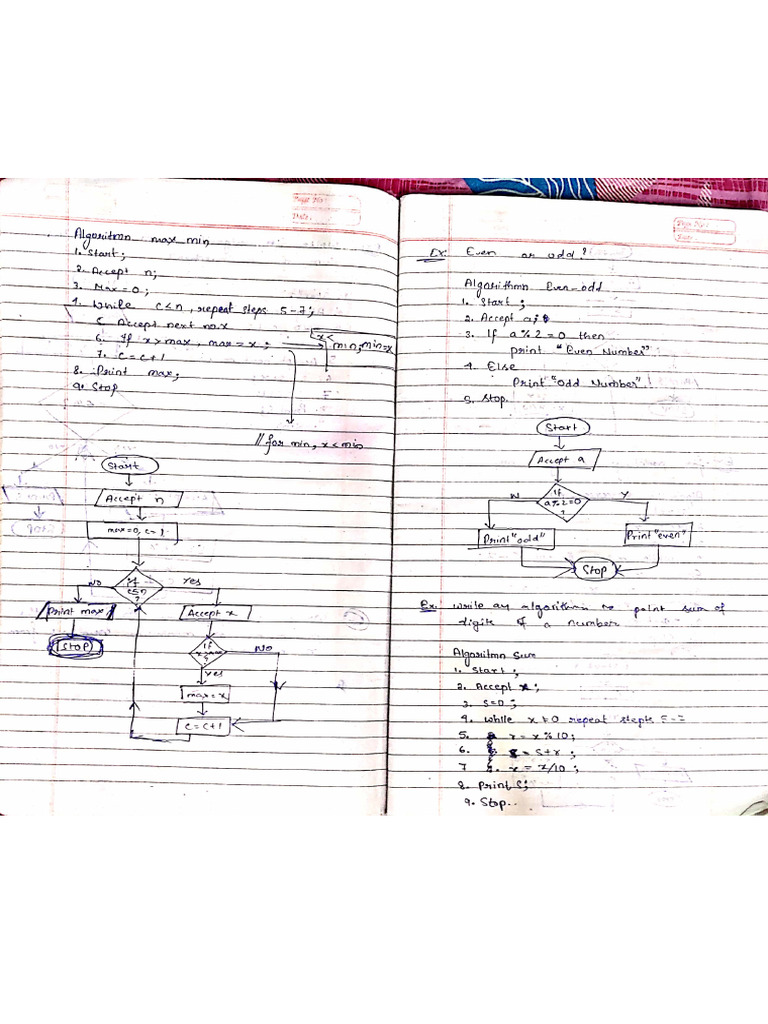 Page No:
Date:
Algoritmn max min
1. Start;
2. Accept n;
3. Max=0;
4. While c≤n, repeat steps 5-7;
5. Accept next no x
6. If x>max, max=x;
x<
min, min=x
7. c=c+1
8. Print max;
9. Stop
// for min, x<min
Start
Accept n
max=0, c=1
If
c≤n
?
NO
Yes
Print max
Stop
Accept x
If
x>max
?
NO
Yes
max=x
c=c+1
Page No:
Date:
Ex: Even or odd?
Algorithmn Even-odd
1. Start;
2. Accept a;
3. If a%2=0 then
print "Even Number"
4. Else
Print "odd Number"
5. Stop.
Start
Accept a
If
a%2=0
?
N
Y
Print "odd"
Print "even"
Stop
Ex: Write an algorithm to print sum of
digits of a number
Algoritmn Sum
1. Start;
2. Accept x;
3. S=0;
4. While x≠0 repeat steps 5-7
5. r=x%10;
6. S=S+r;
7. x=x/10;
8. Print S;
9. Stop..